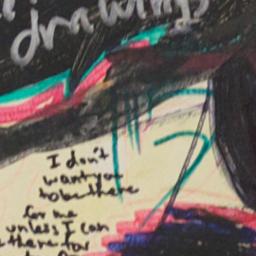 drawings
I don't
want you
to be there
for me
unless I can
there for